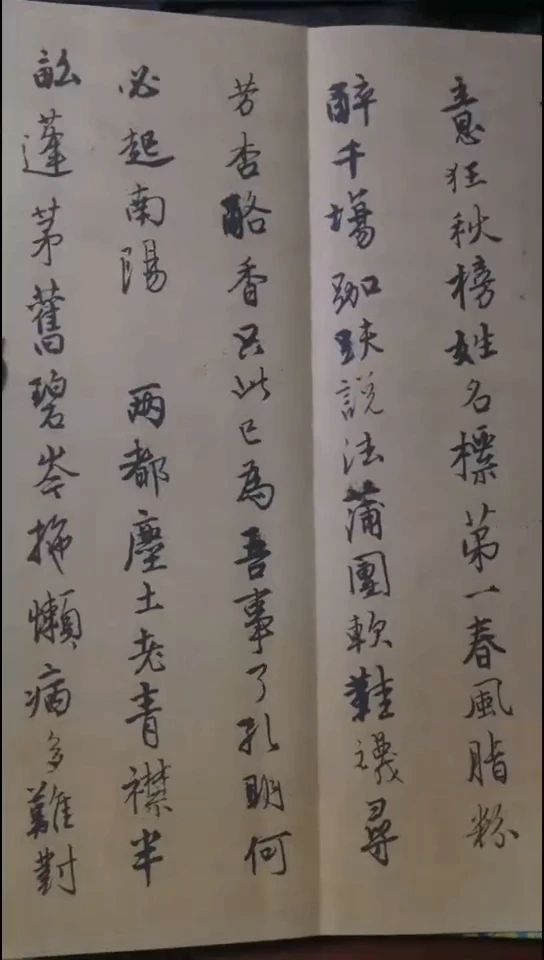 意狂秋榜姓名標第一春風脂粉
醉千場跏趺說法蒲團軟鞋襪尋
芳杏酪香只此已為吾事了孔明何
必起南陽　兩都塵土老青襟半
畝蓬茅舊碧岑拖懶病多難對